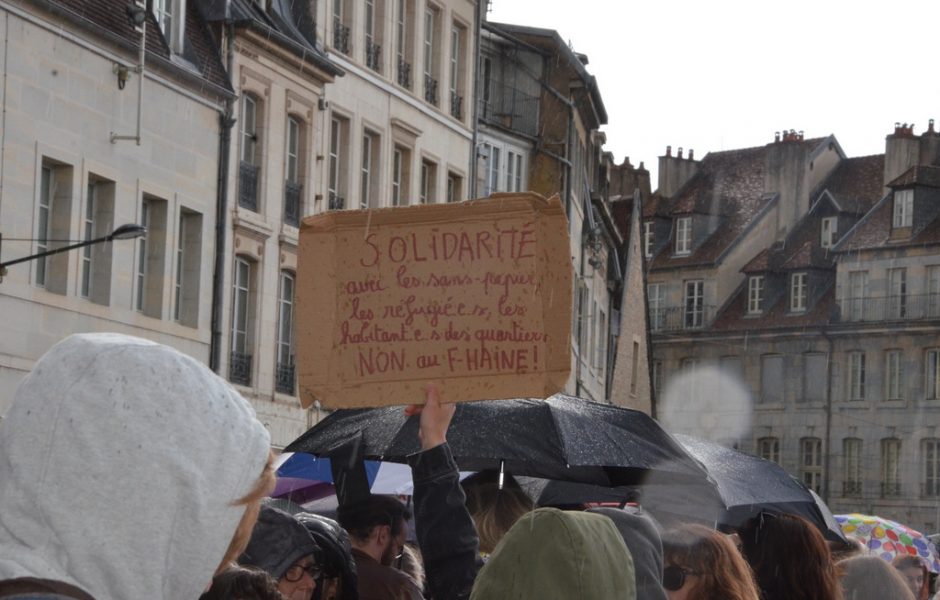 SOLIDARITÉ
avec les sans-papier,
les refugié.e.s, les
habitant.e.s des quartier,
NON au F-HAINE !